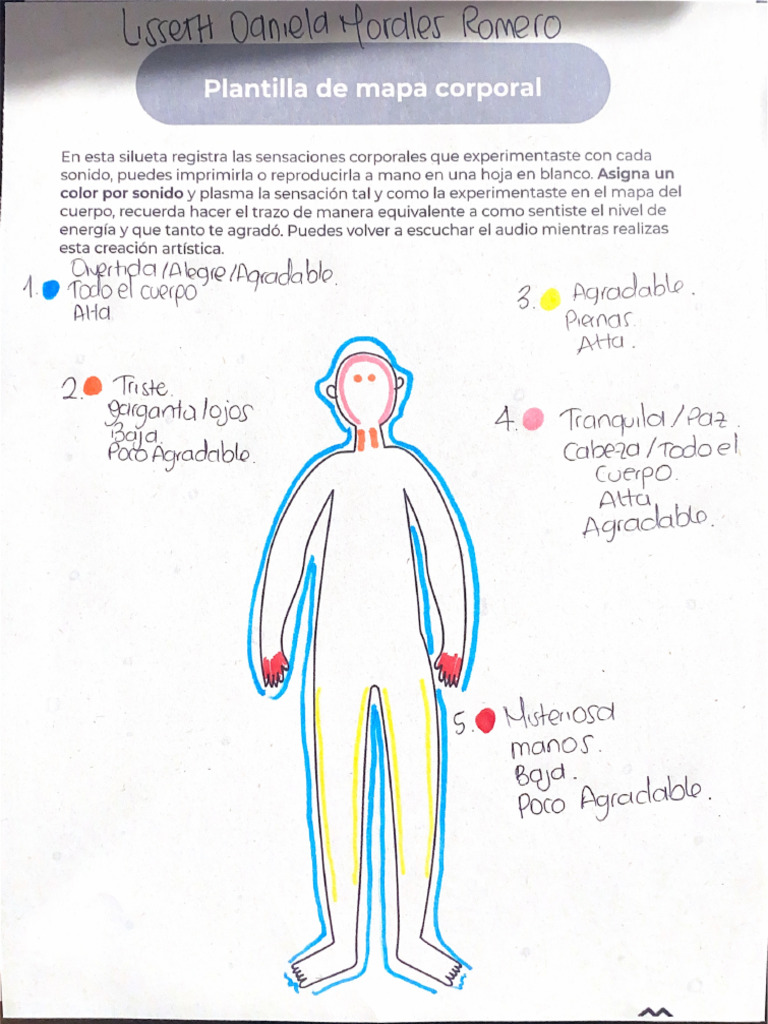 Lisseth Daniela Morales Romero
Plantilla de mapa corporal
En esta silueta registra las sensaciones corporales que experimentaste con cada
sonido, puedes imprimirla o reproducirla a mano en una hoja en blanco. Asigna un
color por sonido y plasma la sensación tal y como la experimentaste en el mapa del
cuerpo, recuerda hacer el trazo de manera equivalente a como sentiste el nivel de
energía y que tanto te agradó. Puedes volver a escuchar el audio mientras realizas
esta creación artística.
1. Divertida/Alegre/Agradable.
Todo el cuerpo
Alta
2. Triste.
garganta/ojos
Baja.
Poco Agradable.
3. Agradable.
Piernas.
Alta.
4. Tranquila/Paz.
Cabeza/Todo el
cuerpo.
Alta
Agradable.
5. Misteriosa
manos.
Baja.
Poco Agradable.